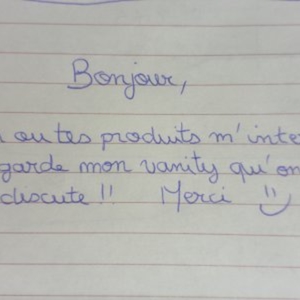 Bonjour,
ou tes produits m'inte
garde mon vanity qu'on
discute !! Merci